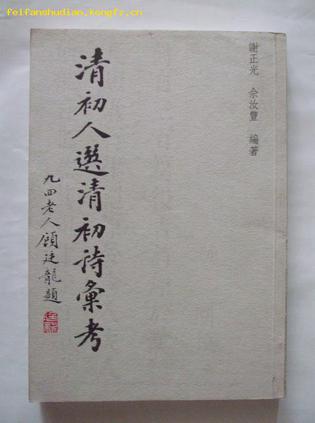 feifanshudian.kongfz.com
謝正光 佘汝豐 編著
清初人選清初詩彙考
九四老人顧廷龍題